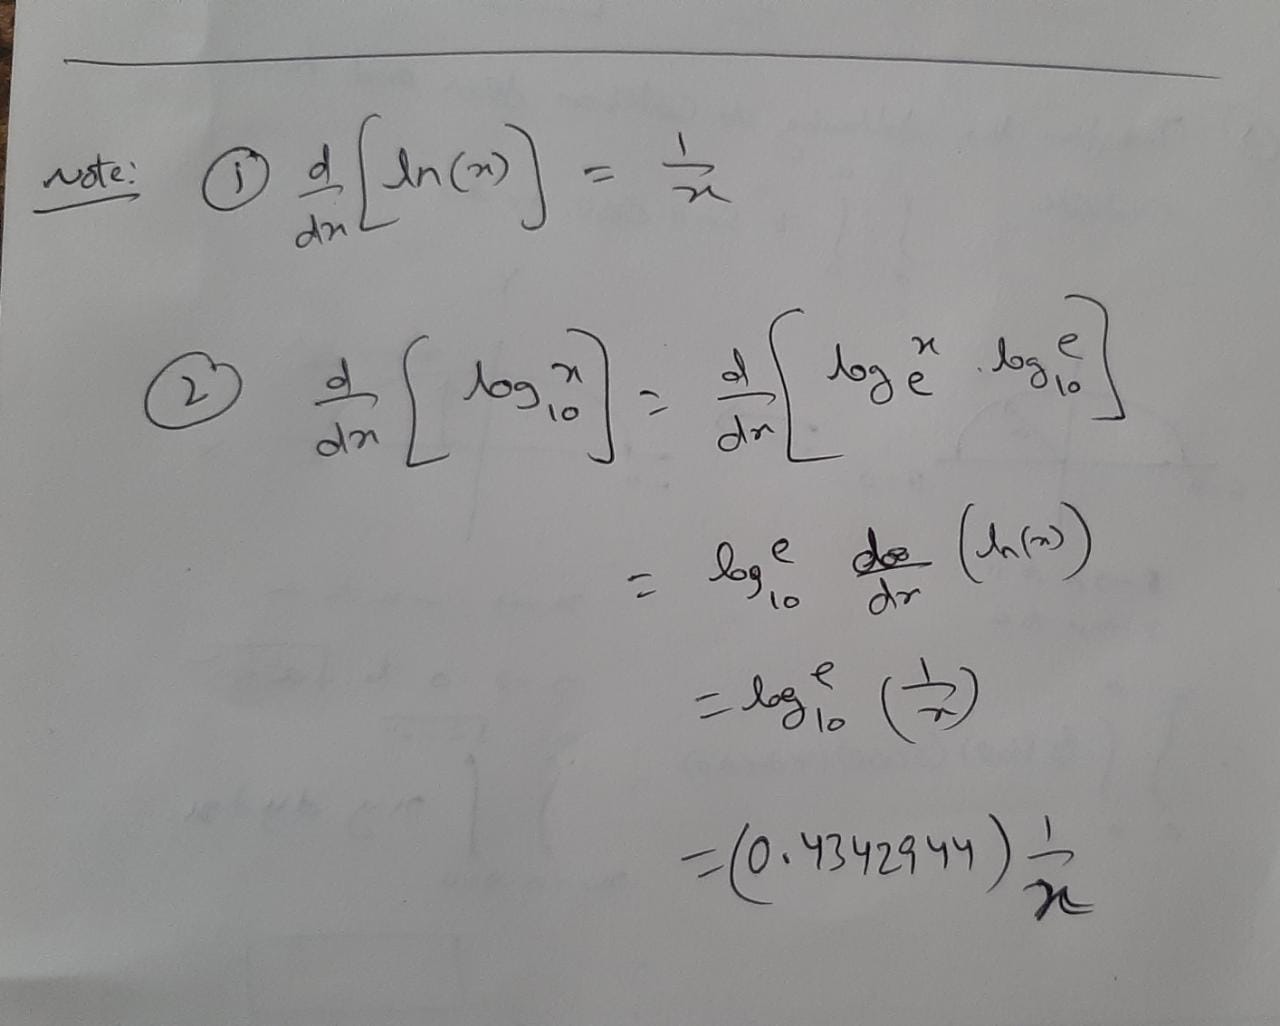 Note: ① d/dx [ln(x)] = 1/x
② d/dx [log₁₀ˣ] = d/dx [logₑˣ . log₁₀ᵉ]
= log₁₀ᵉ d/dx (ln(x))
= log₁₀ᵉ (1/x)
= (0.4342944) 1/x